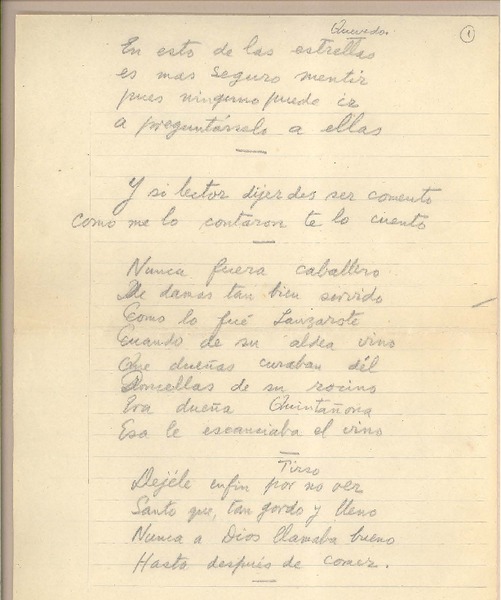 Quevedo.
1
En esto de las estrellas
es mas seguro mentir
pues ninguno puede ir
a preguntárselo a ellas
Y si lector dijerdes ser comento
como me lo contaron te lo cuento
Nunca fuera caballero
De damas tan bien servido
Como lo fué Lanzarote
Cuando de su aldea vino
Que dueñas curaban dél
Doncellas de su rocino
Era dueña Quintañona
Esa le escanciaba el vino
Tirso
Dejéle enfin por no ver
Santo que, tan gordo y lleno
Nunca a Dios llamaba bueno
Hasta después de comer.